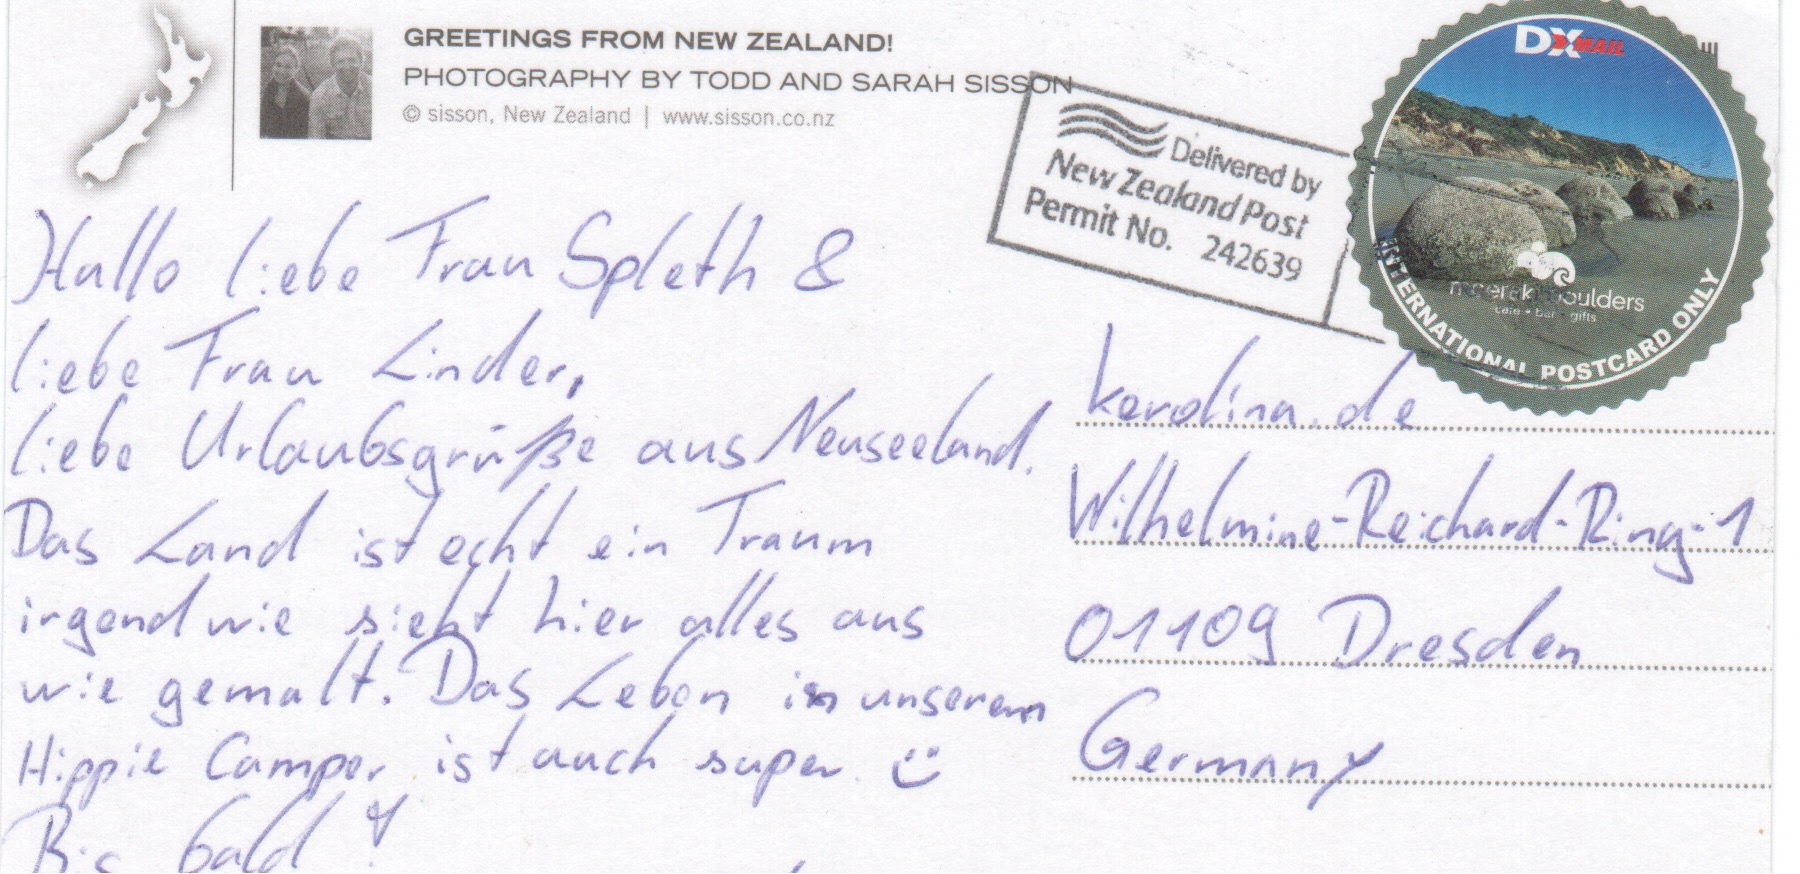 GREETINGS FROM NEW ZEALAND!
PHOTOGRAPHY BY TODD AND SARAH SISSON
© sisson, New Zealand | www.sisson.co.nz
Delivered by
New Zealand Post
Permit No. 242639
DX MAIL
moeraki boulders
cafe • bar • gifts
INTERNATIONAL POSTCARD ONLY
Hallo liebe Frau Spleth &
liebe Frau Linder,
liebe Urlaubsgrüße aus Neuseeland.
Das Land ist echt ein Traum
irgendwie sieht hier alles aus
wie gemalt. Das Leben in unserem
Hippie Camper ist auch super
Bis bald!
kerolina.de
Wilhelmine-Reichard-Ring-1
01109 Dresden
Germany